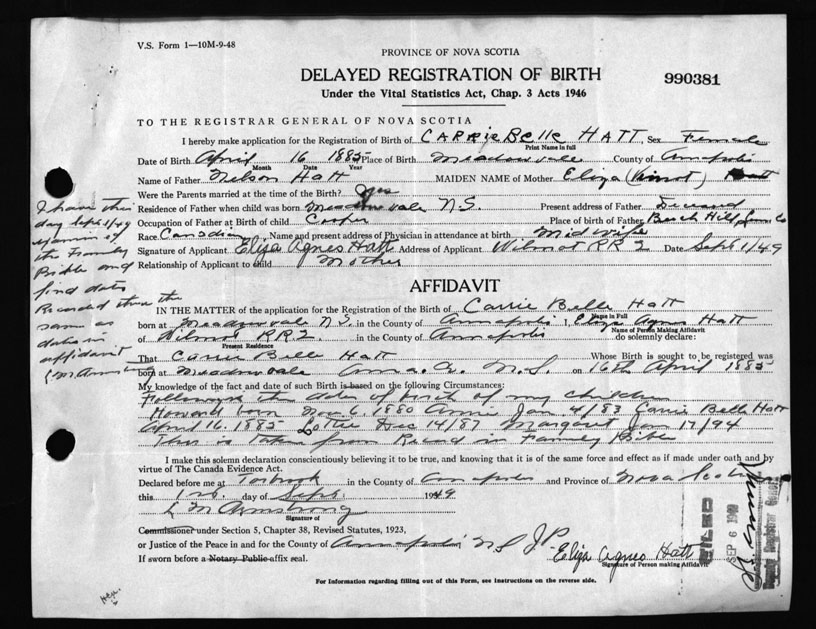 V.S. Form 1—10M-9-48
PROVINCE OF NOVA SCOTIA
DELAYED REGISTRATION OF BIRTH
990381
Under the Vital Statistics Act, Chap. 3 Acts 1946
TO THE REGISTRAR GENERAL OF NOVA SCOTIA
I hereby make application for the Registration of Birth of CARRIE Belle HATT, Sex Female
Print Name in full
Date of Birth April 16 1885 Place of Birth Meadowvale County of Annapolis
Month Date Year
Name of Father Nelson Hatt MAIDEN NAME of Mother Eliza
Were the Parents married at the time of the Birth? yes
Residence of Father when child was born Meadowvale N.S. Present address of Father
Occupation of Father at Birth of child Cooper Place of birth of Father Beech Hill
Race Canadian Name and present address of Physician in attendance at birth Midwife
Signature of Applicant Eliza Agnes Hatt Address of Applicant Wilmot RR 2 Date Sept 1/49
Relationship of Applicant to child Mother
I have this
day Sept 1/49
the Family
Bible and
find dates
Recorded
same as
dates in
affidavit
L M Armstrong
AFFIDAVIT
IN THE MATTER of the application for the Registration of the Birth of Carrie Belle Hatt
Name in Full
born at Meadowvale N.S. in the County of Annapolis I, Eliza Agnes Hatt
Name of Person Making Affidavit
of Wilmot RR2. in the County of Annapolis do solemnly declare:
Present Residence
That Carrie Belle Hatt Whose Birth is sought to be registered was
born at Meadowvale Anna. Co. N.S. on 16th April 1885
My knowledge of the fact and date of such Birth is based on the following Circumstances:
Following the dates of birth of my children
Howard born Nov 6. 1880 Annie Jan 4/83 Carrie Belle Hatt
April 16. 1885 Lottie Dec 14/87 Margaret Jan 17/94
This is Taken from Record in Family Bible
I make this solemn declaration conscientiously believing it to be true, and knowing that it is of the same force and effect as if made under oath and by
virtue of The Canada Evidence Act.
Declared before me at Torbrook in the County of Annapolis and Province of Nova Scotia
this 1st day of Sept. 1949
L M Armstrong
Signature of
Commissioner under Section 5, Chapter 38, Revised Statutes, 1923,
or Justice of the Peace in and for the County of Annapolis N S J P
If sworn before a Notary Public affix seal.
Eliza Agnes Hatt
Signature of Person making Affidavit
FILED
SEP 6 1949
Deputy Registrar General
For Information regarding filling out of this Form, see instructions on the reverse side.